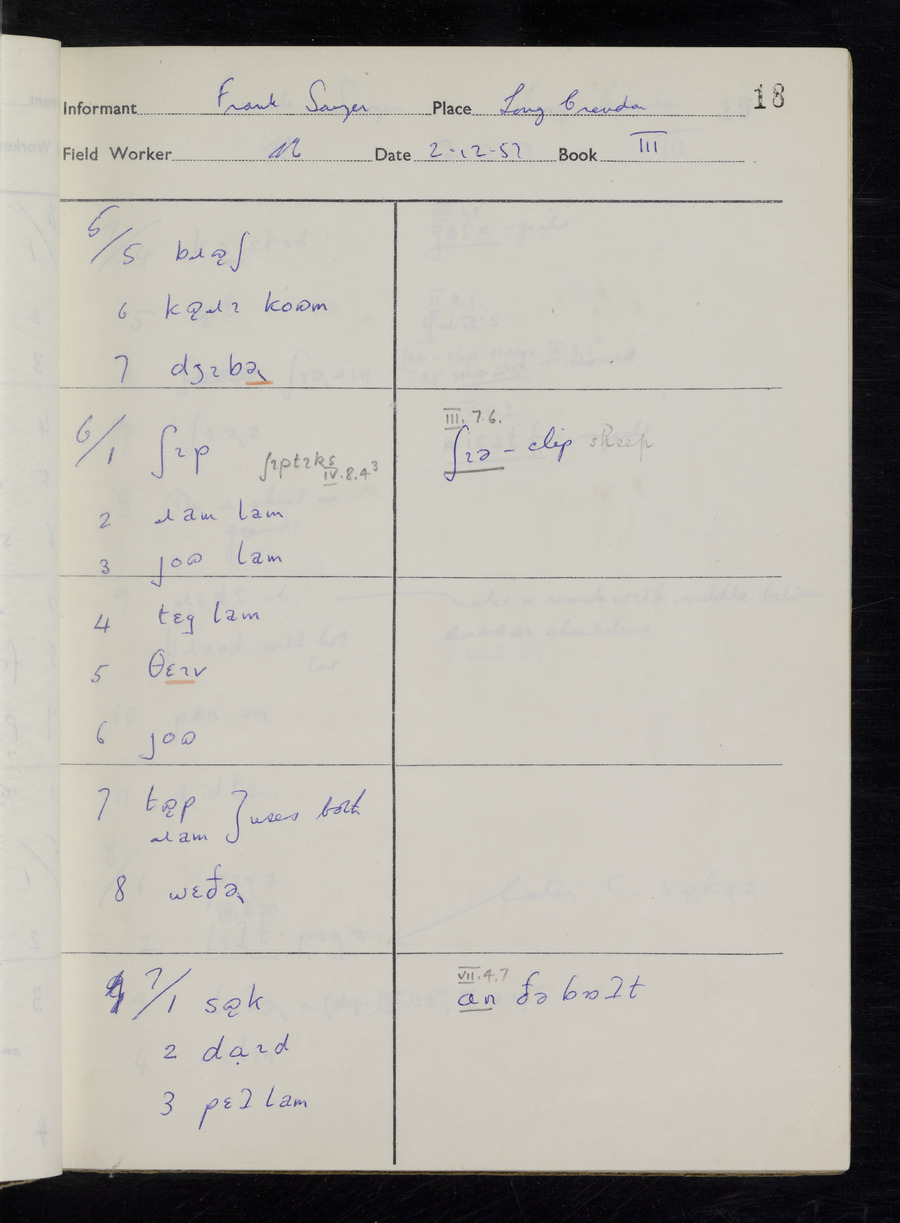 18
Informant Frank Sawyer Place Long Crendon
Field Worker Date 2-12-57 Book III
5/5 bɹʊ̜ʃ
6 kʊ̜ɹɪ koʊm
7 dʒɪbə˞
6/1 ʃɪp ʃɪptɪks IV.8.4³
III.7.6.
ʃɪə - clip sheep
2 ɹam lam
3 joʊ lam
4 tɛg lam
5 θɛɪv
6 joʊ
7 tʊ̜p
ɹam } uses both
8 wɛðə˞
7/1 sʊ̜k
VII.4.7
ɑn ðə bɒɫt
2 dạɪd
3 pɛɫ lam